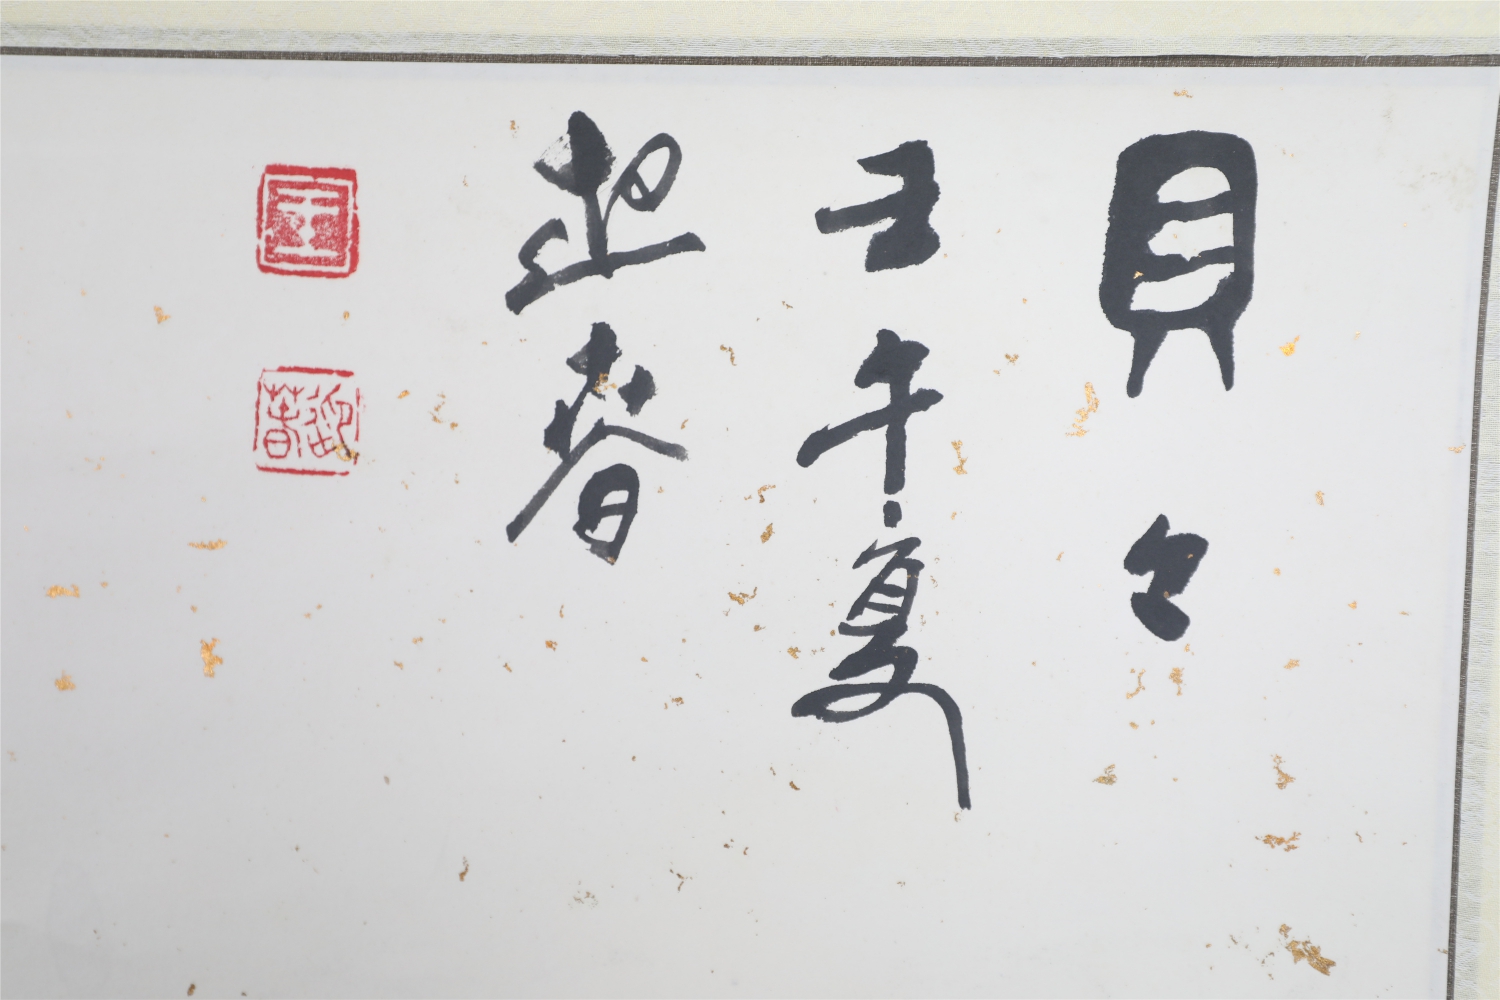 貝々
壬午夏
迎春
王
迎春